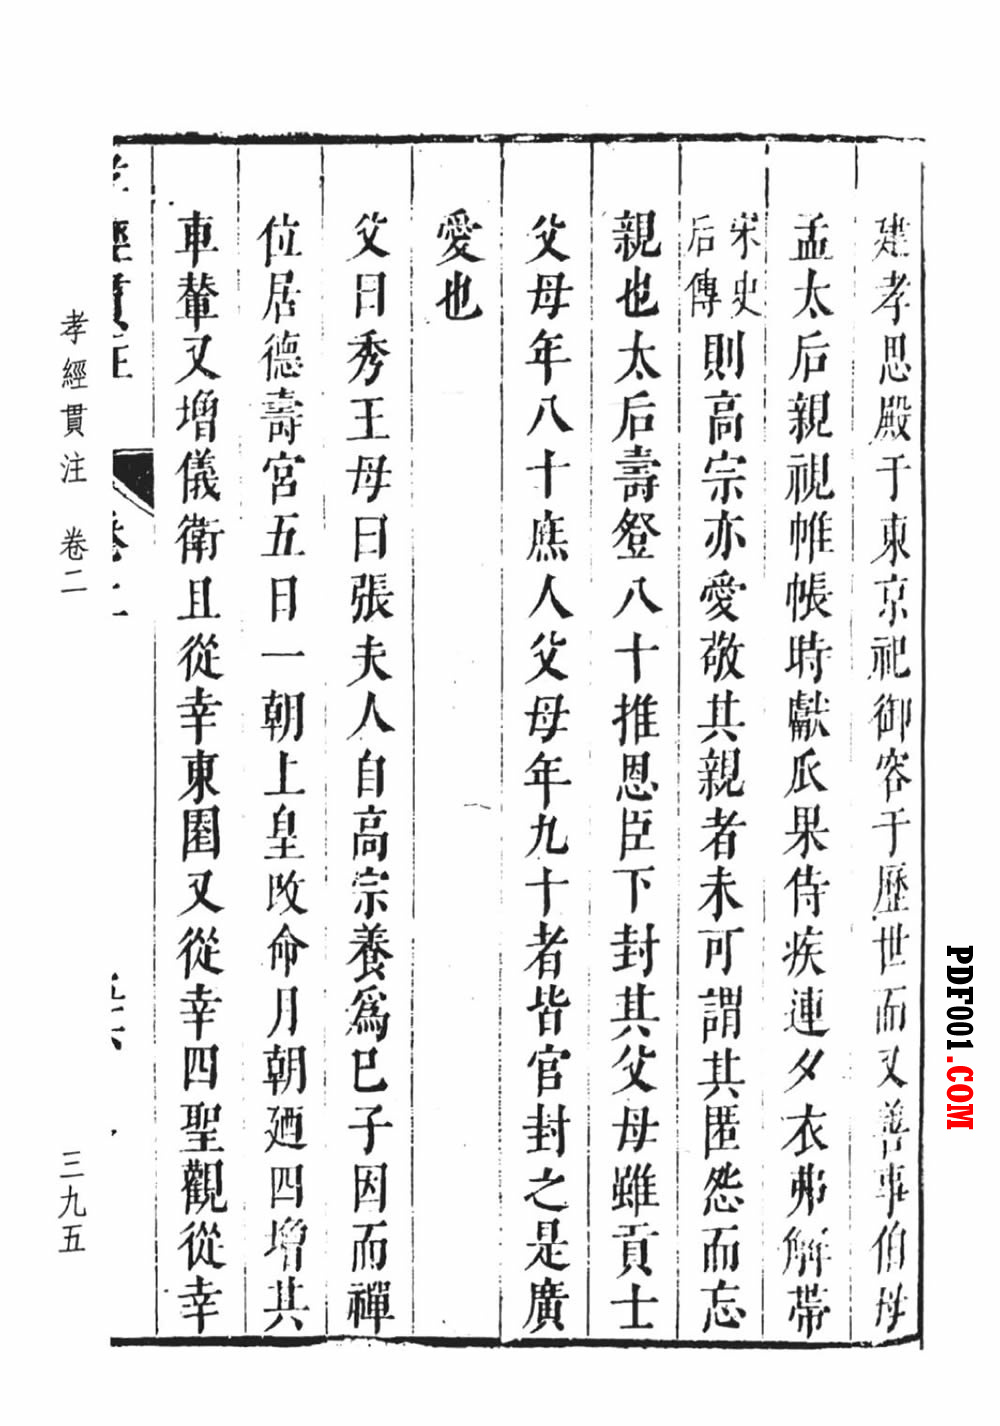 建孝思殿于東京祀御容于歷世而又善事伯母
孟太后親視帷帳時獻瓜果侍疾連夕衣弗解帶
宋史
后傳
則高宗亦愛敬其親者未可謂其匿怨而忘
親也太后壽登八十推恩臣下封其父母雖貢士
父母年八十庶人父母年九十者皆官封之是廣
愛也
父曰秀王母曰張夫人自高宗養爲已子因而禪
位居德壽宮五日一朝上皇改命月朝廼四增其
車輦又增儀衛且從幸東園又從幸四聖觀從幸
孝經貫注 卷二
三九五
PDF001.COM